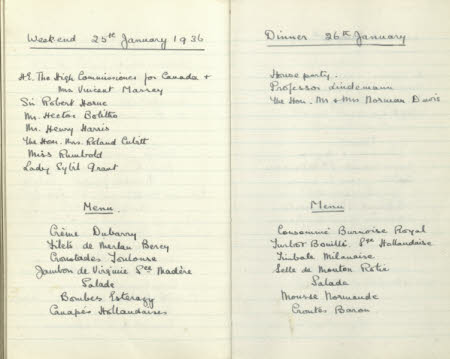 Weekend 25th January 1936
H.E. The High Commissioner for Canada +
Mrs Vincent Massey
Sir Robert Horne
Mr. Hector Bolitho
Mr. Henry Harris
The Hon. Mrs. Roland Cubitt
Miss Rumbold
Lady Sybil Grant
Menu
Crème Dubarry
Filets de Merlan Bercy
Croustades Toulouse
Jambon de Virginie Sce Madère
Salade
Bombes Esterazy
Canapés Hollandaises
Dinner 26th January
House party.
Professor Lindemann
The Hon. Mr + Mrs Norman Davis
Menu
Consommé Royal
Turbot Bouilli Sce Hollandaise
Timbale Milanaise
Selle de Mouton Rôtie
Salade
Mousse Normande
Croutes Baron